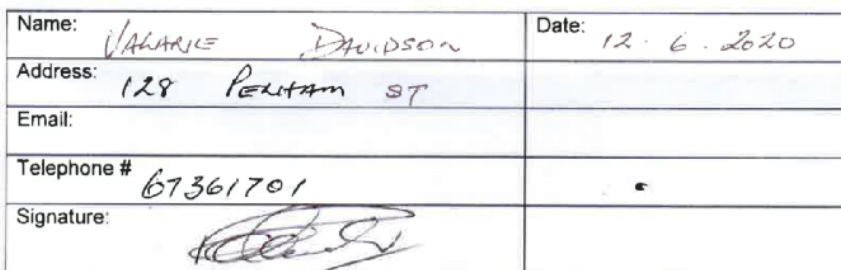 Name: DAVIDSON Date: 12. 6. 2020
Address: 128 ST
Email:
Telephone # 67361701
Signature: